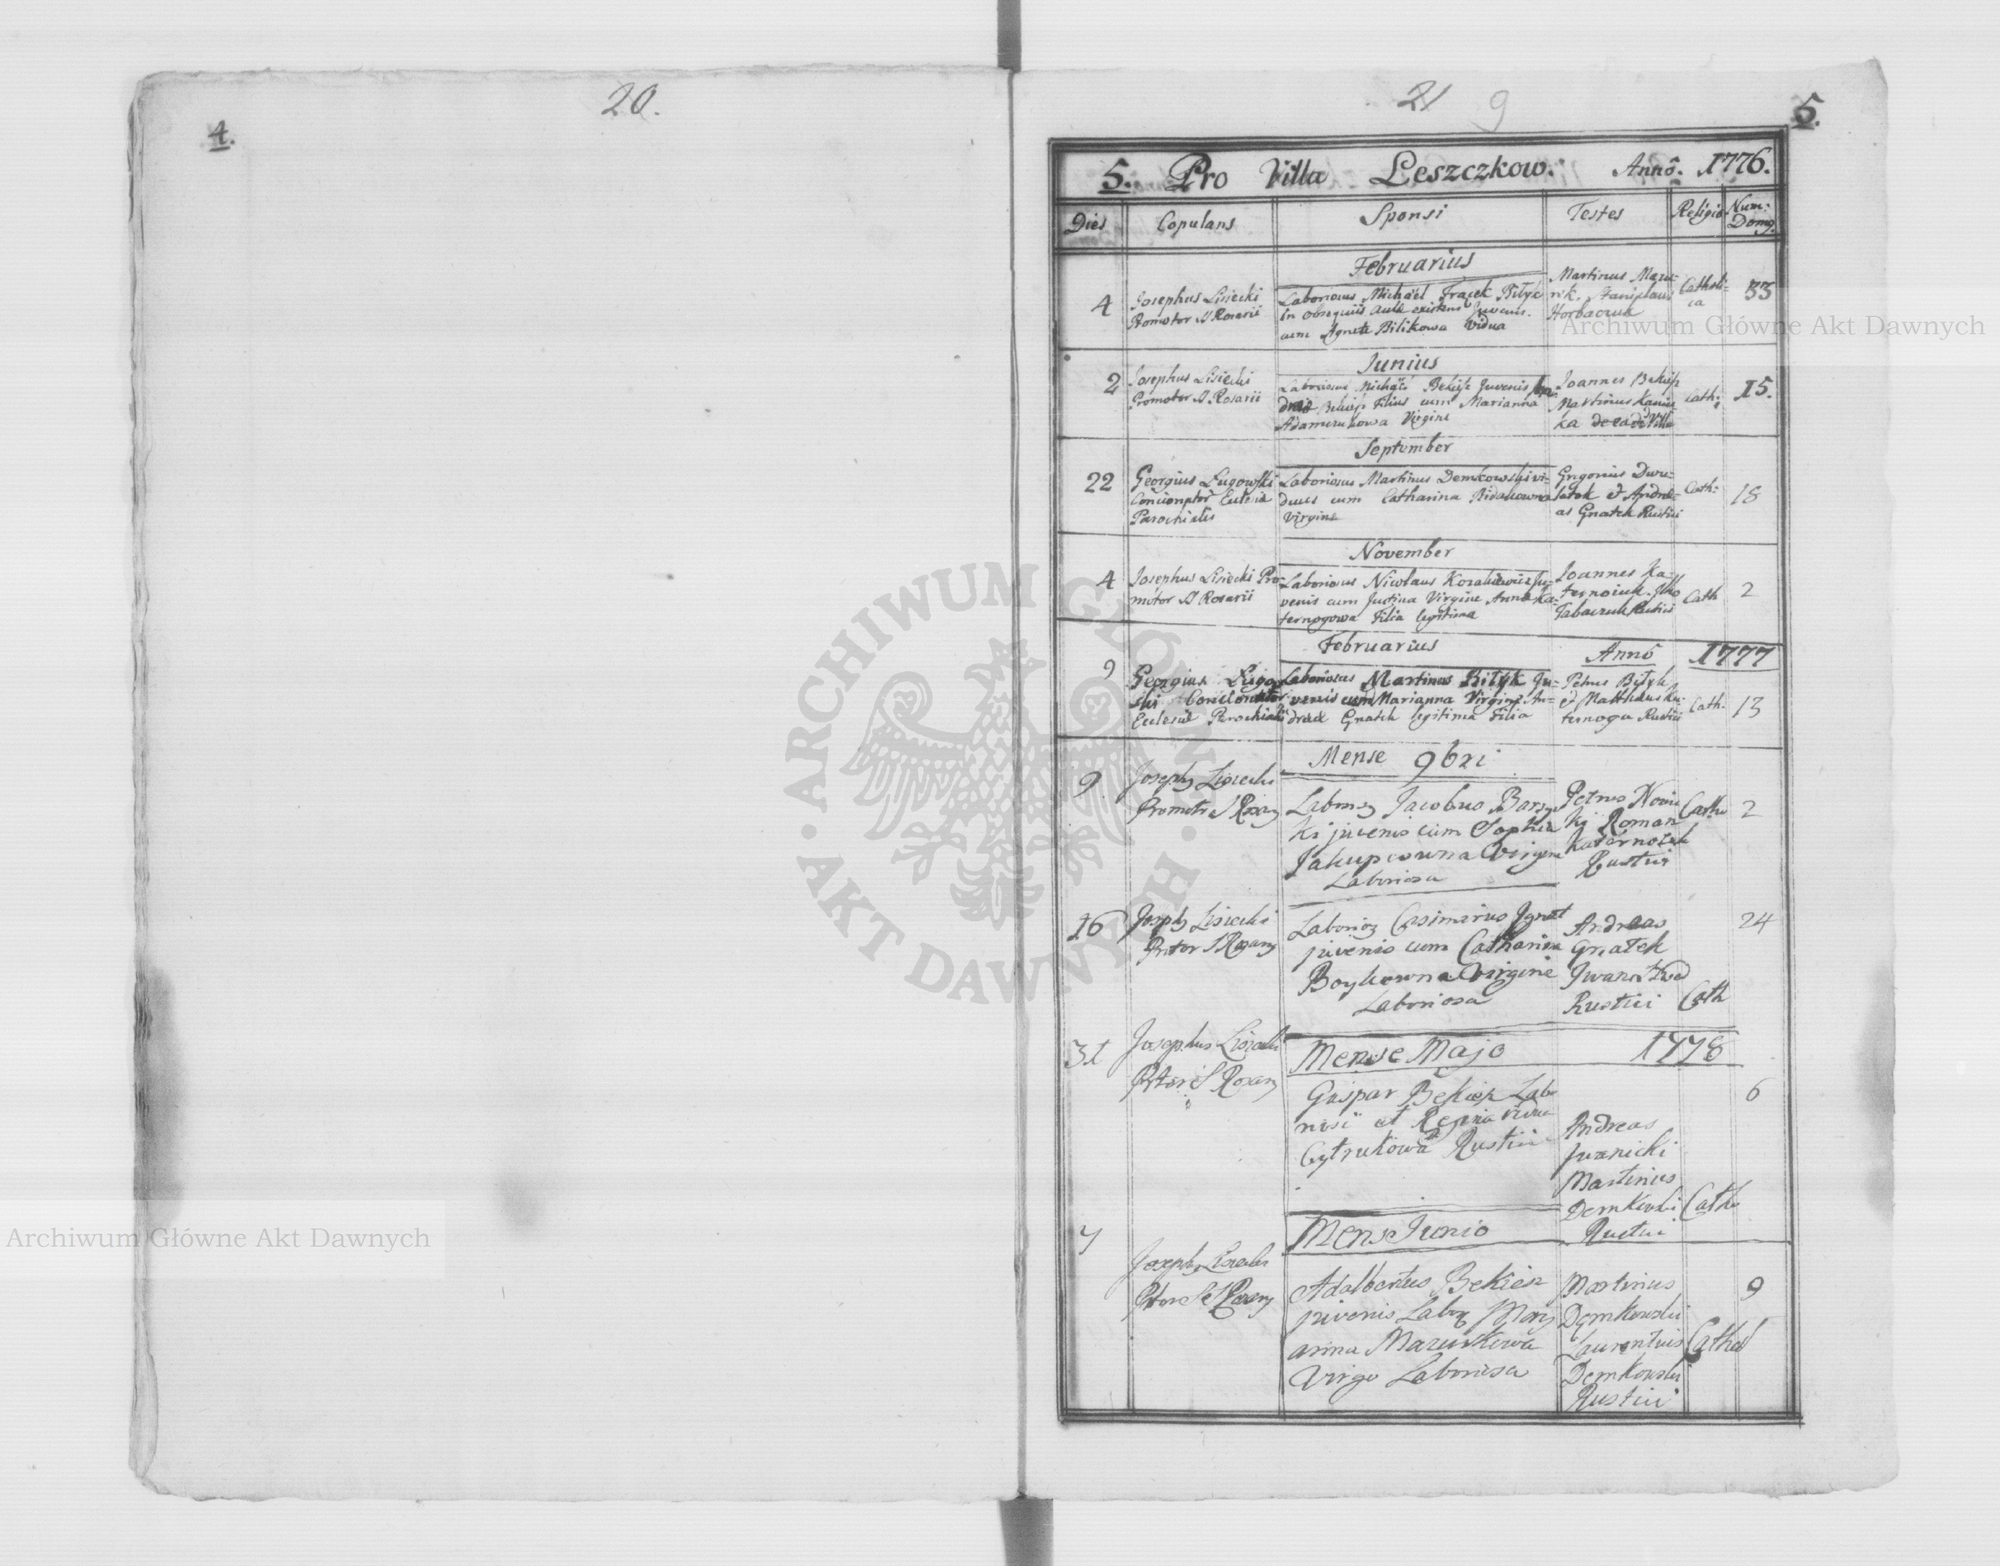 20.
4.
21 9
5.
5. Pro Villa Leszczkow. Annô. 1776.
Dies Copulans Sponsi Testes Religio Num: Domg.
Februarius
4
Josephus Lisiecki
Promotor S Rosarii
Laboriosus Michael Frącek Biłyk
in obsequiis aulæ existens Juvenis.
cum Agnete Bilikowa Vidua
Martinus Mazu-
rik. Stanislaus
Horbaczuk
Catholi-
ca
33
Junius
2
Josephus Lisiecki
Promotor S Rosarii
Laboriosus Michael Bekiesz Juvenis
Bekiesz Filius cum Marianna
Adamczukowa Virgine
Joannes Bekiesz
Martinus
ka de eadē Villa
Cath:
15.
September
22
Georgius Ługowski
Concionator Eclesiæ
Parochialis
Laboriosus Martinus Demkowski vi-
duus cum Catharina
Virgine
Grigorius Dwu-
latek & Andre-
as Gnatek Rustici
Cath:
18
November
4
Josephus Lisiecki Pro-
motor S Rosarii
Laboriosus Nicolaus Kozakiewicz Ju-
venis cum Justina Virgine Anna Ka-
ternogowa Filia legitima
Joannes Ka-
ternoiuk. Ilko
Tabaczuk Rustici
Cath
2
Februarius
Annô 1777
9
Georgius Ługow
ski Concionator
Eclesiæ Parochialis
Laboriosus Martinus Biłyk Ju-
venis cum Marianna Virgine An-
dreæ Gnatek legitima Filia
Petrus Biłyk
& Matthæus Ka-
ternoga Rustici
Cath.
13
Mense 9bri
9
Josephg Lisiecki
Promotr S Rosarg
Jacobus
ki juvenis cum Sophia
Jakupcowna Virgine
Laboriosa
Petrus Nowic
ki Roman
Katernozuk
Rustici
Catho
2
16
Josephg Lisiecki
Laboriosg Casimirus Ignat
juvenis cum Catharina
Boykowna Virgine
Laboriosa
Andreas
Gnatek
Rustici
Cath
24
Mense Majo 1778
31
Josephus Lisiecki
Gaspar Bekiesz Labo
et Regina vidua
Cytrukowa Rustici
Andreas
Jwanicki
Martinus
Demkowski
Rustici
Catho
6
Mense Junio
7
Josephg Lisiecki
Adalbertus Bekiesz
juvenis
anna Mazurkowa
Virgo Laboriosa
Martinus
Demkowski
Laurentius
Demkowski
Rustici
Cathol
9
Archiwum Główne Akt Dawnych
Archiwum Główne Akt Dawnych
ARCHIWUM GŁÓWNE
AKT DAWNYCH